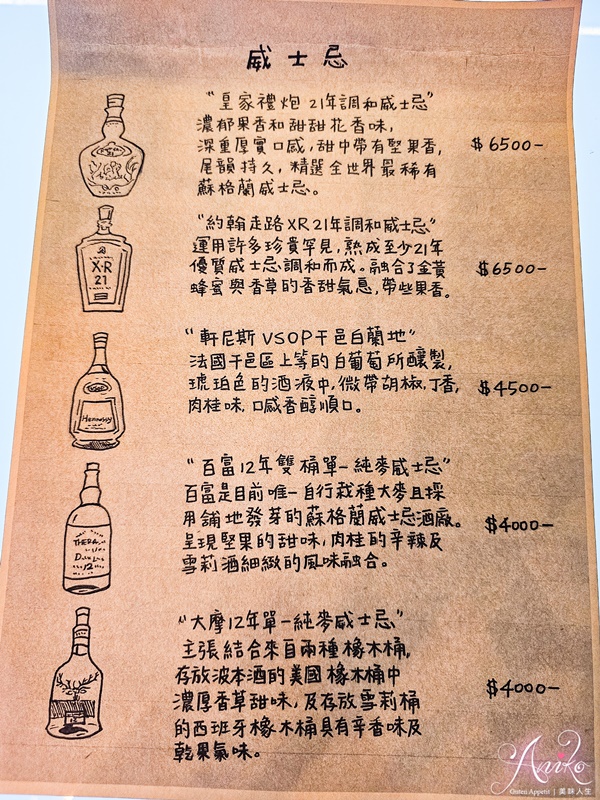 威士忌
“皇家禮炮 21年調和威士忌”
濃郁果香和甜甜花香味,
深重厚實口感,甜中帶有堅果香,
尾韻持久,精選全世界最稀有
蘇格蘭威士忌。
$6500-
“約翰走路XR21年調和威士忌”
運用許多珍貴罕見,熟成至少21年
優質威士忌調和而成。融合了金黃
蜂蜜與香草的香甜氣息,帶些果香。
$6500-
XR
21
“軒尼斯 VSOP干邑白蘭地”
法國干邑區上等的白葡萄所釀製,
琥珀色的酒液中,微帶胡椒,丁香,
肉桂味,口感香醇順口。
$4500-
Hennessy
“百富12年雙桶單一純麥威士忌”
百富是目前唯一自行栽種大麥且採
用舖地發芽的蘇格蘭威士忌酒廠。
呈現堅果的甜味,肉桂的辛辣及
雪莉酒細緻的風味融合。
$4000-
12
“大摩12年單一純麥威士忌”
主張結合來自兩種橡木桶,
存放波本酒的美國橡木桶中
濃厚香草甜味,及存放雪莉桶
的西班牙橡木桶具有辛香味及
乾果氣味。
$4000-
Aniko
Guten Appetit | 美味人生